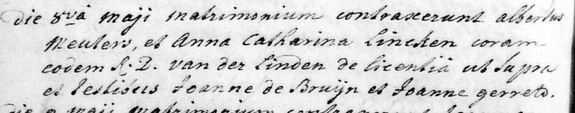 die 8va maji matrimonium contraxerunt albertus
Meulers, et Anna Catharina Lincken coram
eodem R. D. van der Linden de licentia ut supra
et testibus Joanne de Bruijn et Joanne gerrets.
die 9 maji matrimonium contraxerunt